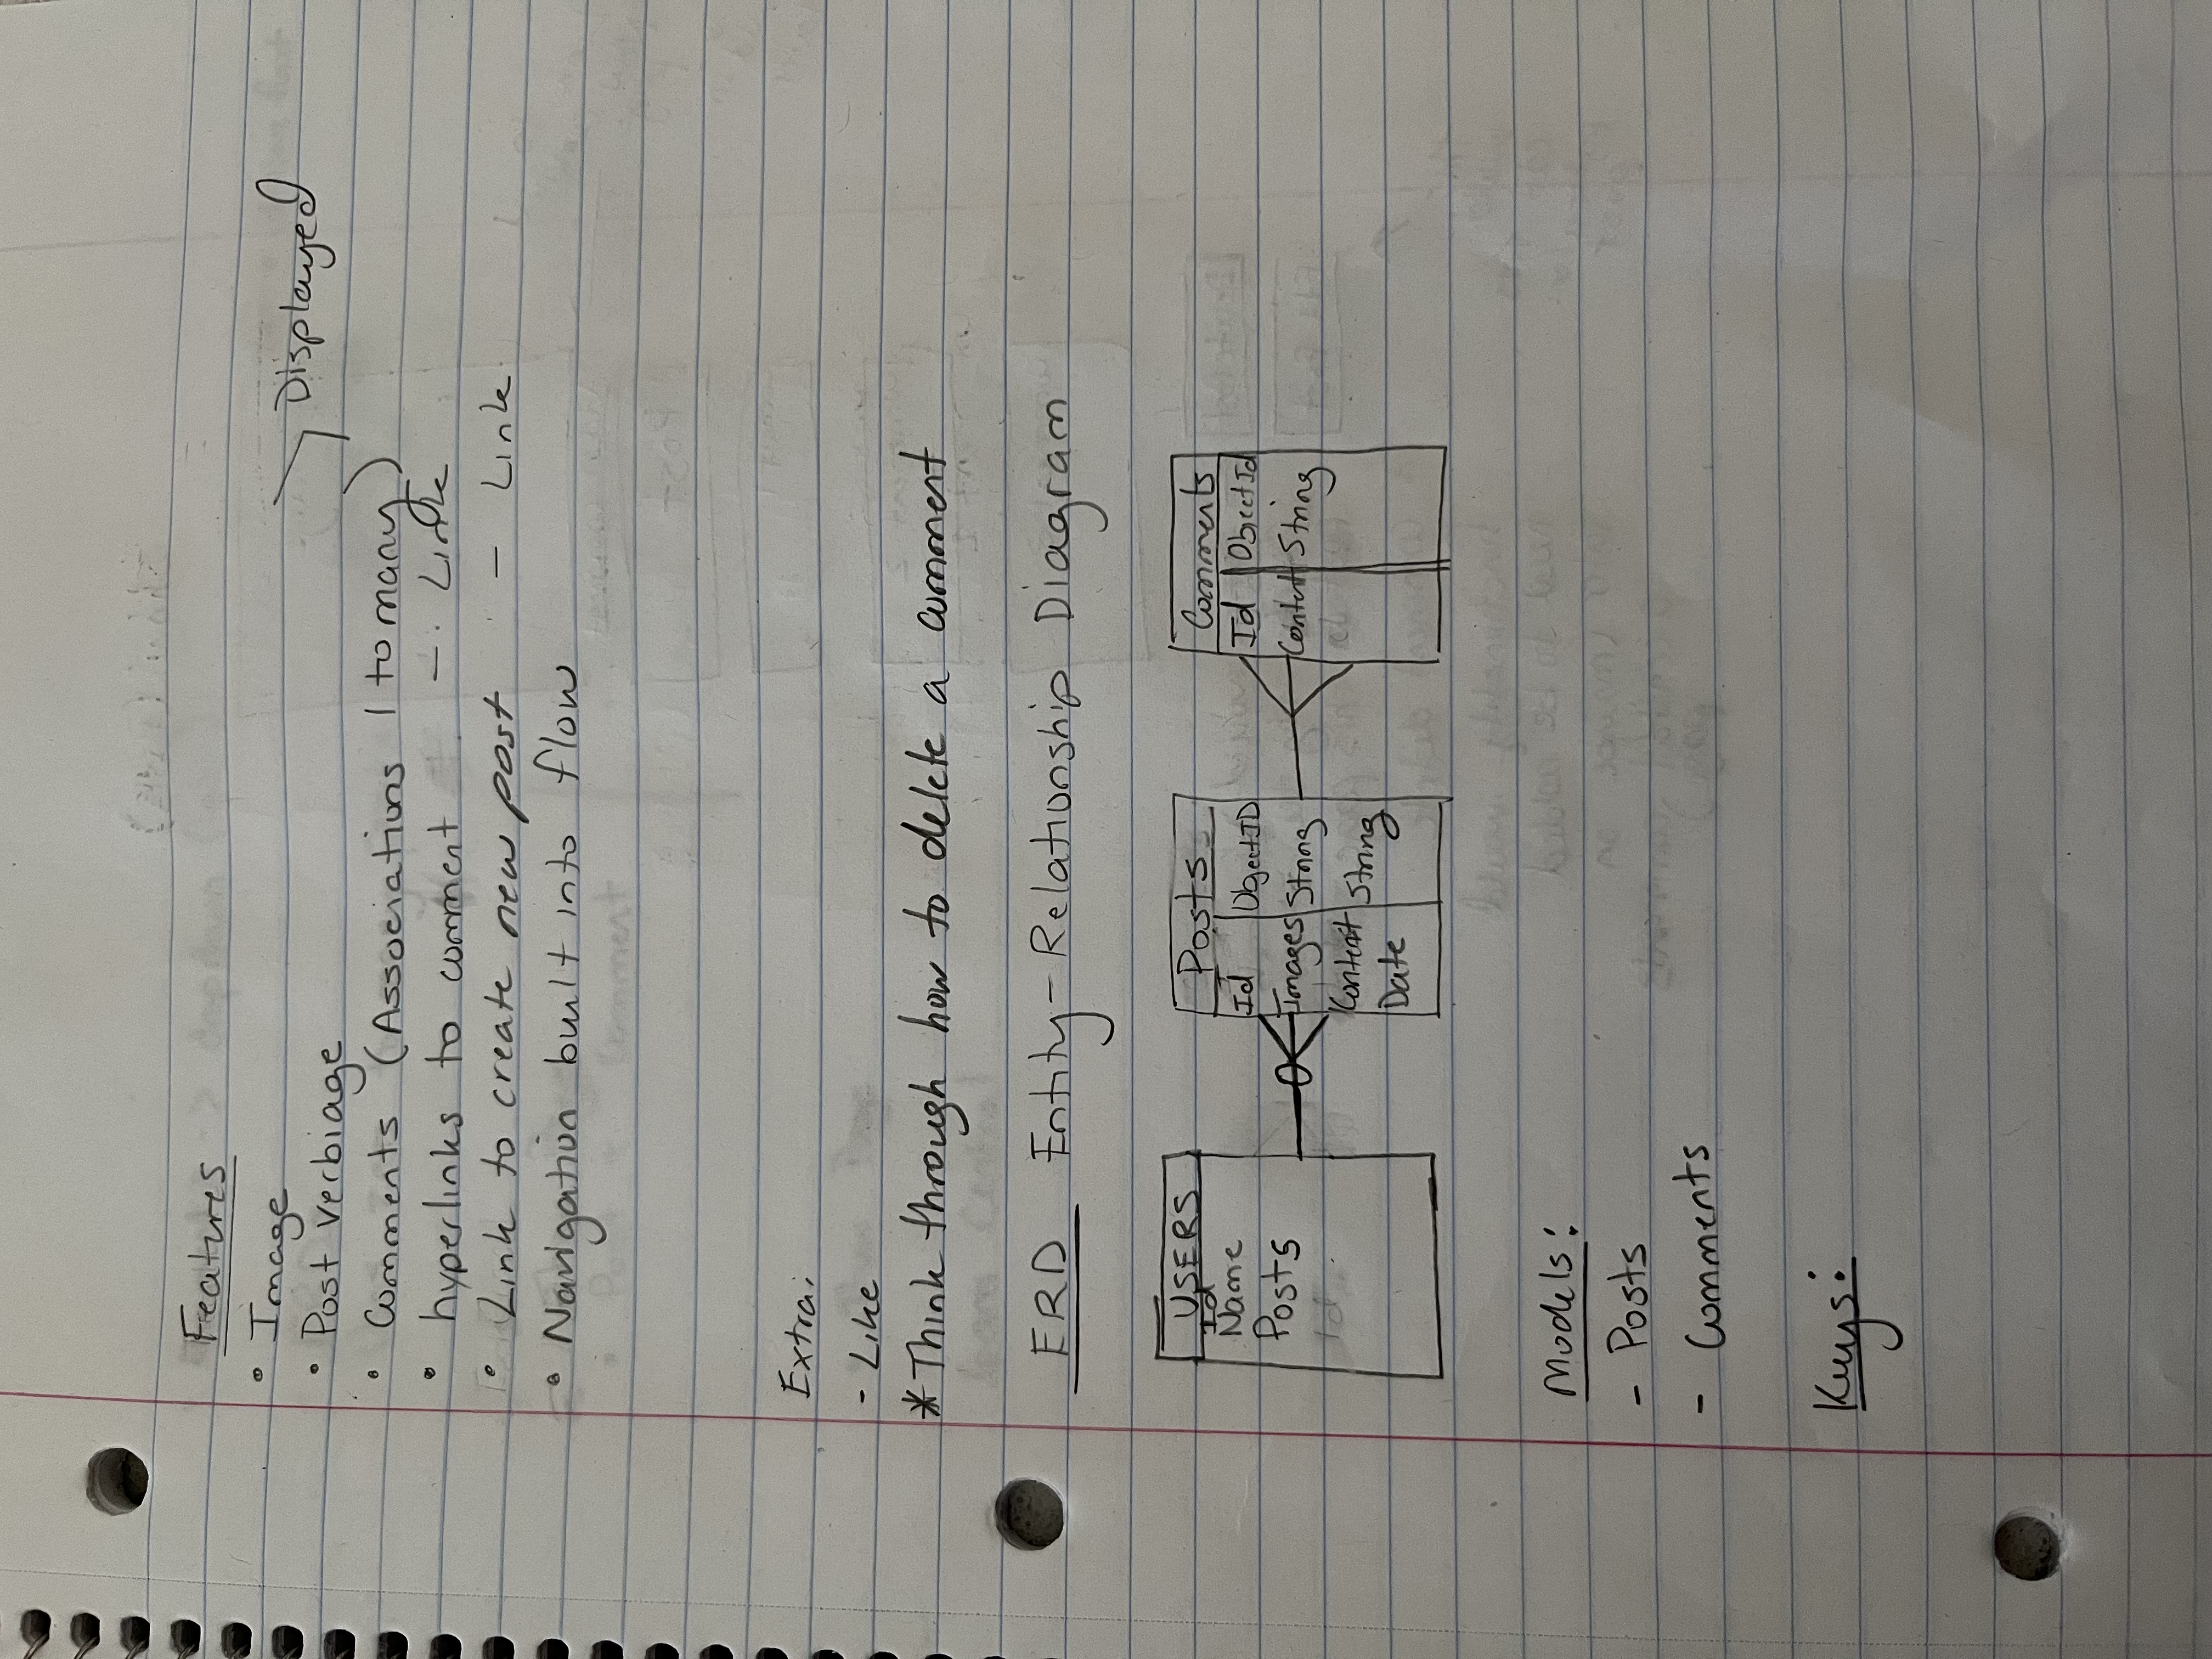 Features
• Image
Displayed
• Post verbiage
• Comments (Associations 1 to many)
• hyperlinks to comment — Link
• Link to create new post — Link
• Navigation built into flow
Extra:
- Like
* Think through how to delete a comment
ERD Entity-Relationship Diagram
USERS
Id
Name
Posts
Id
Posts
Id ObjectID
Images String
Content String
Date
Comments
Id ObjectId
Content String
Models:
- Posts
- Comments
Keys: